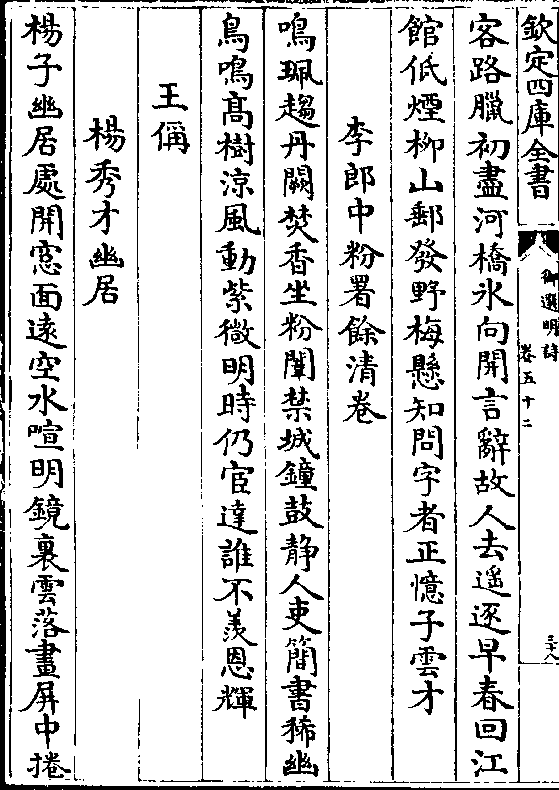 欽定四庫全書
御選明詩
卷五十二
三十八
客路臘初盡河橋氷向開言辭故人去遥逐早春回江
館低煙柳山郵發野梅懸知問字者正憶子雲才
李郎中粉署餘清卷
鳴珮趨丹闕焚香坐粉闈禁城鐘鼓静人吏簡書稀幽
鳥鳴髙樹涼風動紫微明時仍宦達誰不羨恩輝
王偁
楊秀才幽居
楊子幽居處開窓面逺空水喧明鏡裏雲落畫屏中捲